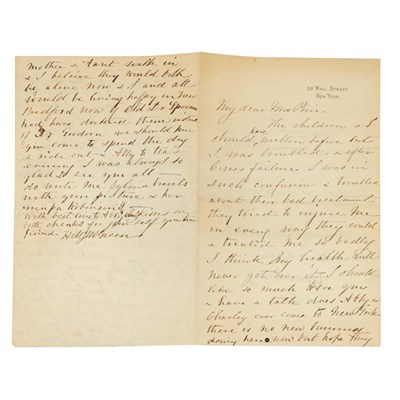 20 WALL STREET
NEW YORK
My dear Mrs
The children & I
have
should written before but
I was troubled & after
Cisco failure I was in
such confusion & troubled
about their bad treatment
they tried to injure me
in every way they could
& treated me so badly
I think my health will
never get over it I should
like so much to see you
& have a talk does Abby or
Charley ever come to New York
there is no new business
doing here now but hope they
Mother & Aunt walk in
& I believe they would both
be alive now & I and all
would be living happy in New
Bedford now if old Dr
had have doctored them instead
of Dr Gordon we should have
you come to spend the day
& ride out & Abby to tea
evening I was always so
glad to see you all
do write me Sylvia & travels
with your picture & her
Grandpa Robinson
With best love to Abby
with thanks for your self your true
friend Hetty H R Green